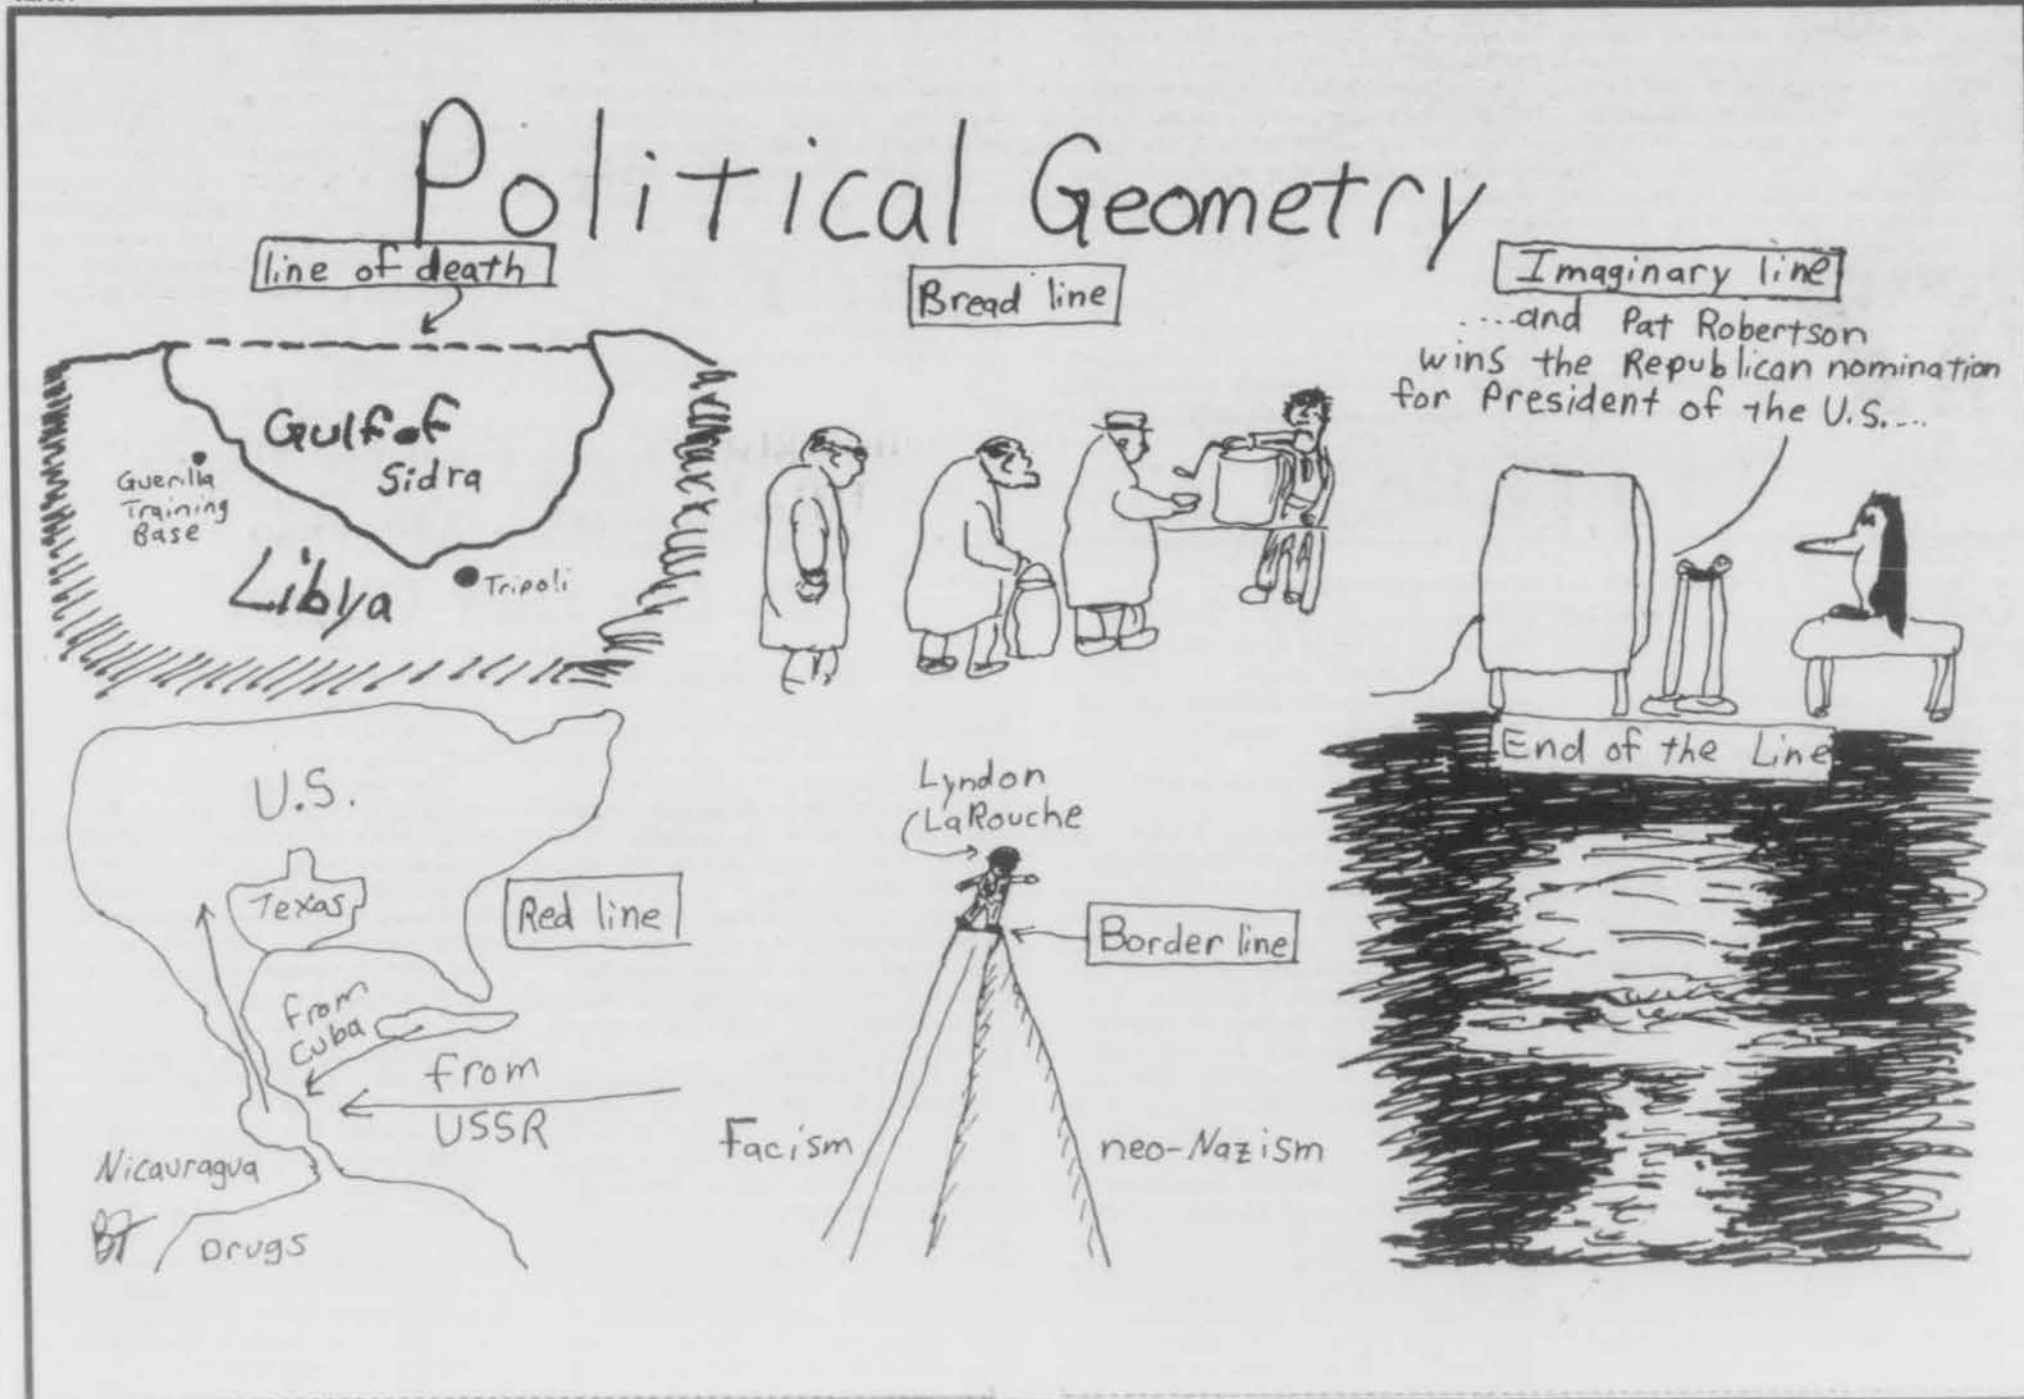 Political Geometry
line of death
Gulf of
Sidra
Guerilla
Training
Base
Libya
Tripoli
Bread line
Imaginary line
....and Pat Robertson
wins the Republican nomination
for President of the U.S....
U.S.
Texas
Red line
from
Cuba
from
USSR
Nicauragua
Drugs
BT
Lyndon
LaRouche
Border line
Facism
neo-Nazism
End of the Line